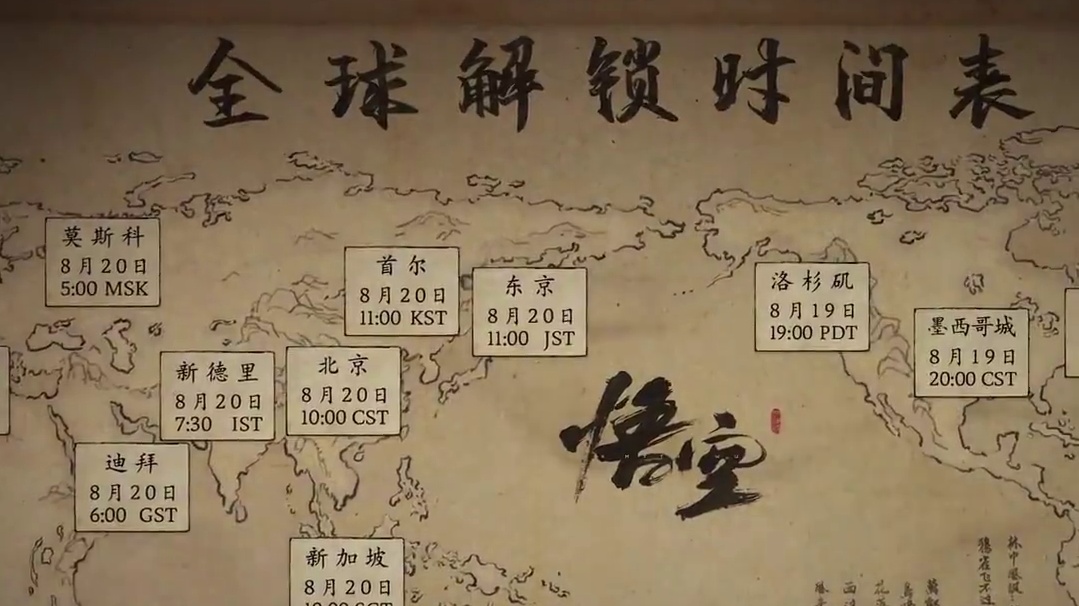 全球解锁时间表
莫斯科
8月20日
5:00 MSK
首尔
8月20日
11:00 KST
东京
8月20日
11:00 JST
洛杉矶
8月19日
19:00 PDT
墨西哥城
8月19日
20:00 CST
新德里
8月20日
7:30 IST
北京
8月20日
10:00 CST
悟空
迪拜
8月20日
6:00 GST
新加坡
8月20日